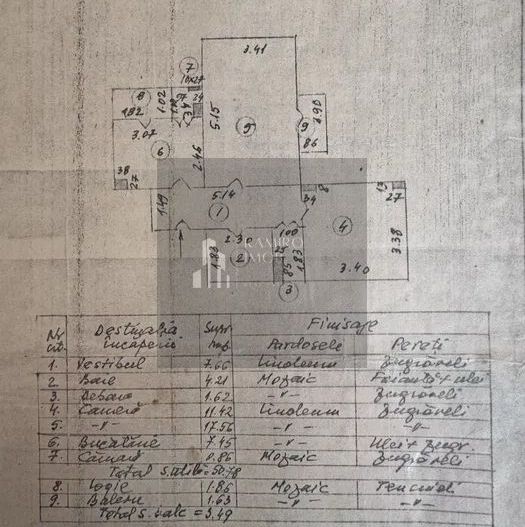 3.41
7
10x27
8
1.02
24
1.82
34
5.15
9
3.90
3.07
86
6
2.46
38
27
5.14
34
8
13
27
1.49
1
4
2.30
100
RAMIRO
IMOB
1.83
2
25
85
1.83
3.38
3.40
3
Nr. crt. Destinația încăperii Supr. Finisaje
Pardoseli Pereți
1. Vestibul 7.66 Linoleum Zugrăveli
2 Baie 4.21 Mozaic Faianță + ulei
3. Debara 1.62 -"- Zugrăveli
4. Cameră 11.42 Linoleum Zugrăveli
5. -"- 17.56 -"- -"-
6. Bucătărie 7.45 -"- Ulei + zugr.
7. Cămară 0.86 Mozaic Zugrăveli
Total s. utilă = 50.78
8. Logie 1.86 Mozaic
9. Balcon 1.63 -"- -"-
Total s. balc = 3.49